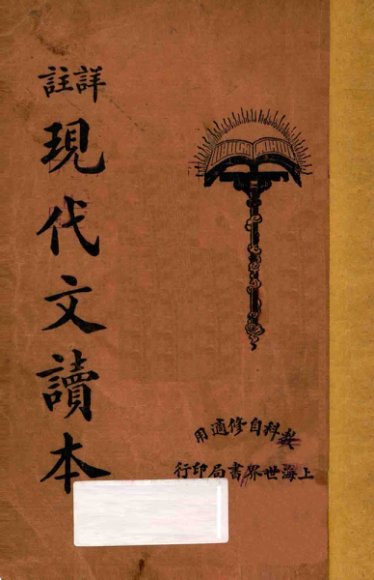 詳註
現代文讀本
教科自修適用
上海世界書局印行